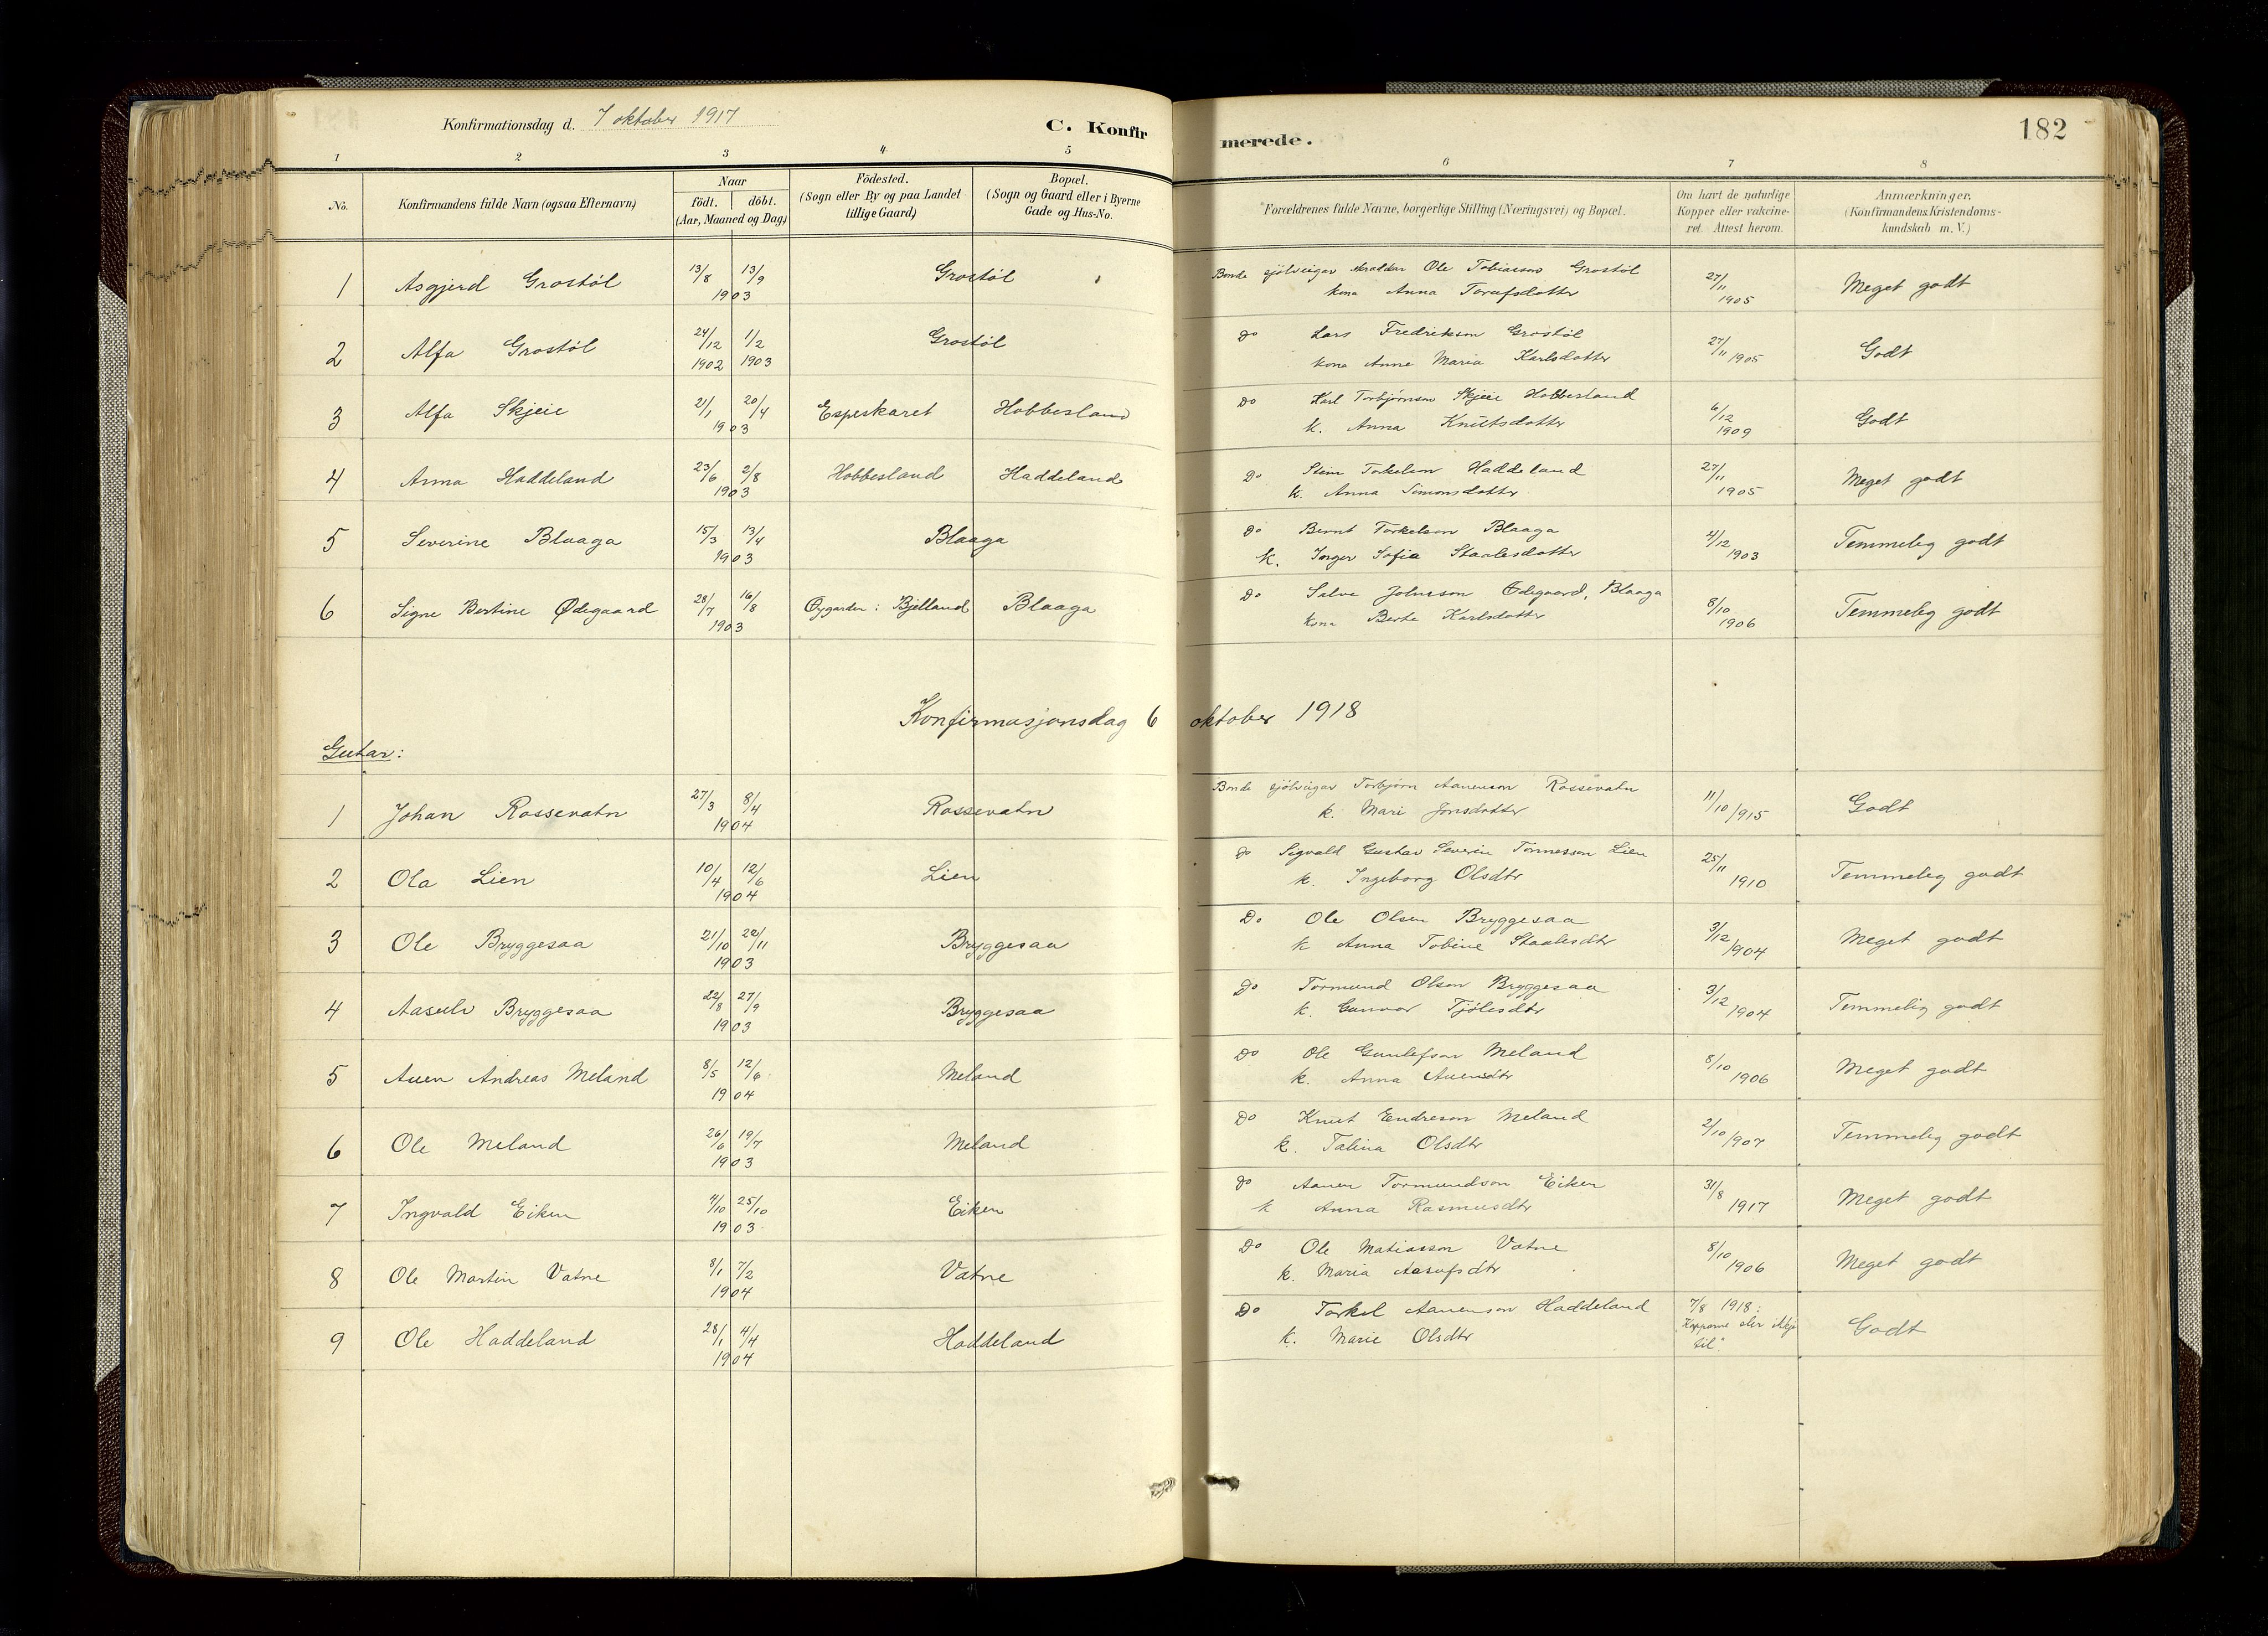 Konfirmationsdag d. 7 oktober 1917
C. Konfirmerede.
182
1 2 3 4 5 6 7 8
No.
Konfirmandens fulde Navn (ogsaa Efternavn)
Naar
födt. döbt.
(Aar, Maaned og Dag)
Födested.
(Sogn eller By og paa Landet
tillige Gaard)
Bopæl.
(Sogn og Gaard eller i Byerne
Gade og Hus-No.
Forældrenes fulde Navne, borgerlige Stilling (Næringsvei) og Bopæl.
Om havt de naturlige
Kopper eller vakcine-
ret. Attest herom.
Anmærkninger.
(Konfirmandens Kristendoms-
kundskab m. V.)
1 Asgjerd Grostöl 13/8 13/9 1903 Grostöl Bonde sjölveigar Ole Tobiasson Grostöl kona Anna 27/11 1905 Meget godt
2 Alfa Grostöl 24/12 1902 1/2 1903 Grostöl Do Lars Fredrikson Grostöl kona Anne Maria Karlsdotter 27/11 1905 Godt
3 Alfa Skjeie 21/1 20/4 1903 Espeskaret Hobbesland Do Karl Torbjørnson Skjeie Hobbesland k. Anna Knutsdotter 6/12 1909 Godt
4 Anna Haddeland 23/6 2/8 1903 Hobbesland Haddeland Do Stein Torkelson Haddeland k. Anna Simonsdotter 27/11 1905 Meget godt
5 Severine Blaaga 15/3 13/4 1903 Blaaga Do Bernt Torkelson Blaaga k. Inger Sofia Staalesdotter 4/12 1903 Temmeleg godt
6 Signe Bertine Ødegaard 28/7 16/8 1903 Øygarden i Bjelland Blaaga Do Salve Johnsson Ødegaard, Blaaga kona Berte Karlsdotter 8/10 1906 Temmeleg godt
Konfirmasjonsdag 6 oktober 1918
Gutar:
1 Johan Rossevatn 27/3 8/4 1904 Rossevatn Bonde sjölveigar Torbjørn Aanenson Rossevatn k. Mari Jonsdotter 11/10 1915 Godt
2 Ola Lien 10/4 12/6 1904 Lien Do Sigvald Gustav Severin Tønnesson Lien k. Ingeborg Olsdtr 25/11 1910 Temmeleg godt
3 Ole Bryggesaa 21/10 22/11 1903 Bryggesaa Do Ole Olsen Bryggesaa k Anna Tobine Staalesdtr 3/12 1904 Meget godt
4 Aasulv Bryggesaa 22/8 27/9 1903 Bryggesaa Do Tormund Olson Bryggesaa k. Gunvor Tjölesdtr 3/12 1904 Temmelig godt
5 Auen Andreas Meland 8/5 12/6 1904 Meland Do Ole Gunlefson Meland k. Anna Auensdtr 8/10 1906 Meget godt
6 Ole Meland 26/6 19/7 1903 Meland Do Knut Endreson Meland k. Talina Olsdtr 2/10 1907 Temmeleg godt
7 Ingvald Eiken 4/10 25/10 1903 Eiken Do Aanen Tormundson Eiken k Anna Rasmusdtr 31/8 1917 Meget godt
8 Ole Martin Vatne 8/1 7/2 1904 Vatne Do Ole Matiasson Vatne k. Maria Aasufsdtr 8/10 1906 Meget godt
9 Ole Haddeland 28/1 4/4 1904 Haddeland Do Torkel Aanenson Haddeland k. Marie Olsdtr 7/8 1918: "Kopparne slær ikkje til". Godt